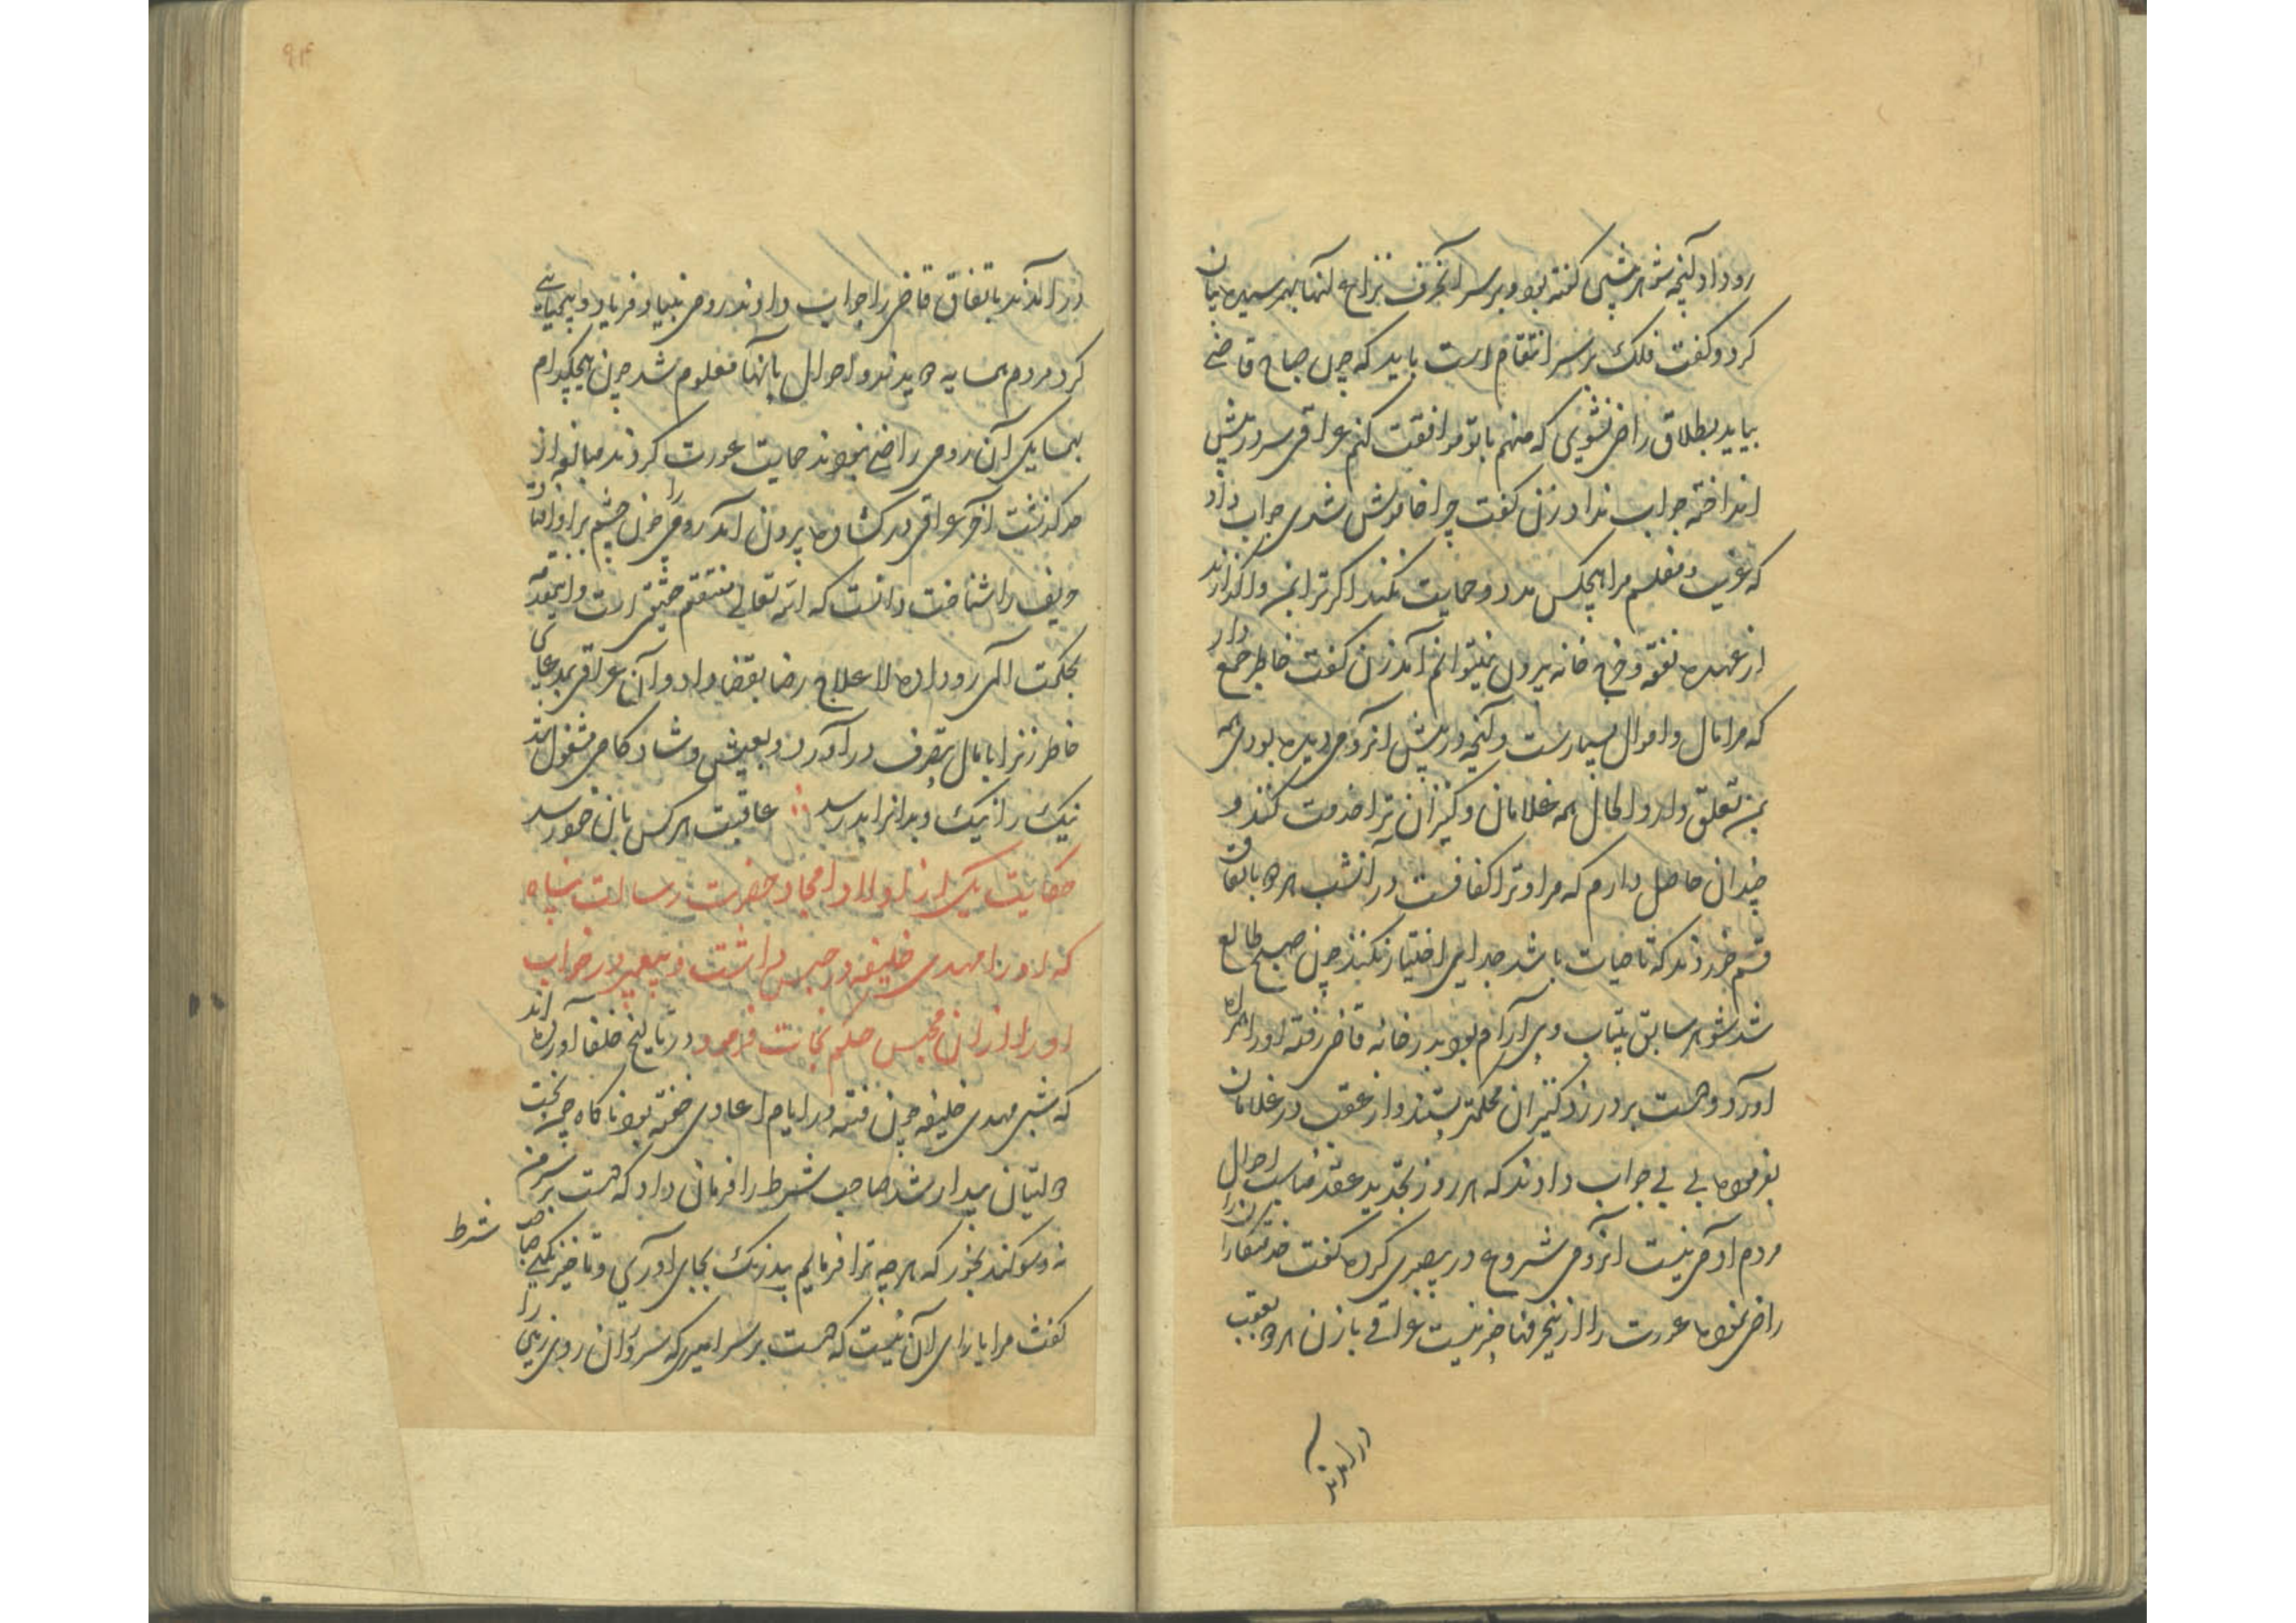 روداد آنچه شوهرش گفته بود و بر سر آنحرف نزاع آنها بهم رسیده بیان
کرد و گفت فلک بر سر انتقام است باید که چون صباح قاضی
بیاید بطلاق راضی نشوی که منهم با تو موافقت کنم عراقی سر در پیش
انداخته جواب نداد زن گفت چرا خاموش شدی جواب داد
که غریب و مفلسم مرا هیچکس مدد و حمایت نکند اگر ترا بمن واگذارند
از عهده نفقه و خرج خانه بیرون نمیتوانم آمد زن گفت خاطر جمع دار
که مرا مال و اموال بسیارست و آنچه در پیش آنرومی دیده بودی همه
بمن تعلق دارد و الحال همه غلامان و کنیزان ترا خدمت کنند و
چندان حاصل دارم که مرا و ترا کفافست در آنشب هر دو باتفاق
قسم خوردند که تا حیات باشد جدایی اختیار نکنند چون صبح طالع
شد شوهر سابق بیتاب و بی آرام بود بدر خانه قاضی رفته او را همراه
آورد و دست بر در زد کنیزان محکمتر بستند و از عقب در غلامان
بفرموده بی بی جواب دادند که هر روز تجدید عقد مناسب احوال
مردم آدمی نیست آنرومی شروع در بیصبری کرده گفت خدمتکاران را
راضی نموده عورت را ازینحرفها خبر نیست عراقی با زن هر دو بعقب
در آمدند
در آمدند باتفاق قاضی را جواب دادند رومی بنیاد فریاد و بیحیایی
کرد مردم همسایه دویدند و احوال بآنها معلوم شد چون هیچکدام
بهمسایکی آن رومی راضی نبودند حمایت عورت کردند مبالغه از
حد گذشت آخر عراقی در گشاده بیرون آمد رومی را چون چشم بر او افتاد
حریف را شناخت دانست که الله تعالی منتقم حقیقی است و اینمقدمه
بحکمت الهی رو داده لاعلاج رضا بقضا داد و آن عراقی بمدعای
خاطر زنرا با مال بتصرف در آورد و بعیش و شادکامی مشغول شد
نیک را نیک و بدانرا بد رسد ∴ عاقبت هر کس بآن خود رسد
حکایت یکی از اولاد امجاد حضرت رسالت پناه
که او را مهدی خلیفه در حبس داشت و پیغمبر در خواب
او را از آن محبس حکم نجات فرمود در تاریخ خلفا آورده اند
که شبی مهدی خلیفه چون فتنه در ایام اعادی خفته بود ناگاه چون بخت
دولتیان بیدار شد صاحب شرط را فرمان داد که دست بر سر من
نه و سوگند بخور که هر چه ترا فرمایم بیدرنک بجای آوری و تاخیر نکنی صاحب
شرط
گفت مرا یارای آن نیست که دست بر سر امیر که سروران روی زمین را